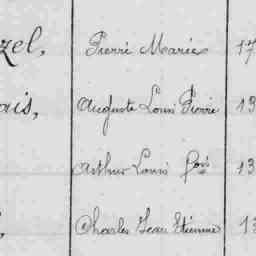 zel, Pierre Marie 17
ais, Auguste Louis Pierre 13
Arthur Louis fois 13
Charles Jean Etienne 13